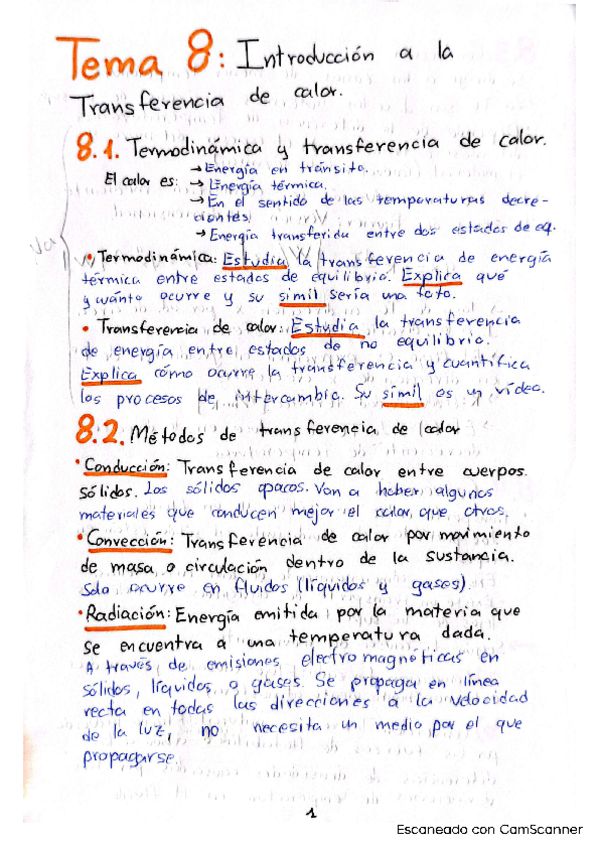 Tema 8: Introducción a la
Transferencia de calor.
8.1. Termodinámica y transferencia de calor.
El calor es: → Energía en tránsito.
→ Energía térmica.
→ En el sentido de las temperaturas decre-
cientes
→ Energía transferida entre dos estados de eq.
• Termodinámica: Estudia la transferencia de energía
térmica entre estados de equilibrio. Explica qué
y cuánto ocurre y su simil sería una foto.
• Transferencia de calor: Estudia la transferencia
de energía entre estados de no equilibrio.
Explica cómo ocurre la transferencia y cuantifica
los procesos de intercambio. Su simil es un vídeo.
8.2. Métodos de transferencia de calor
• Conducción: Transferencia de calor entre cuerpos
sólidos. Los sólidos opacos. Van a haber algunos
materiales que conducen mejor el calor que otros.
• Convección: Transferencia de calor por movimiento
de masa o circulación dentro de la sustancia.
Solo ocurre en fluidos (líquidos y gases).
• Radiación: Energía emitida por la materia que
se encuentra a una temperatura dada.
A través de emisiones electromagnéticas en
sólidos, líquidos o gases. Se propaga en línea
recta en todas las direcciones a la velocidad
de la luz, no necesita un medio por el que
propagarse.
1
Escaneado con CamScanner